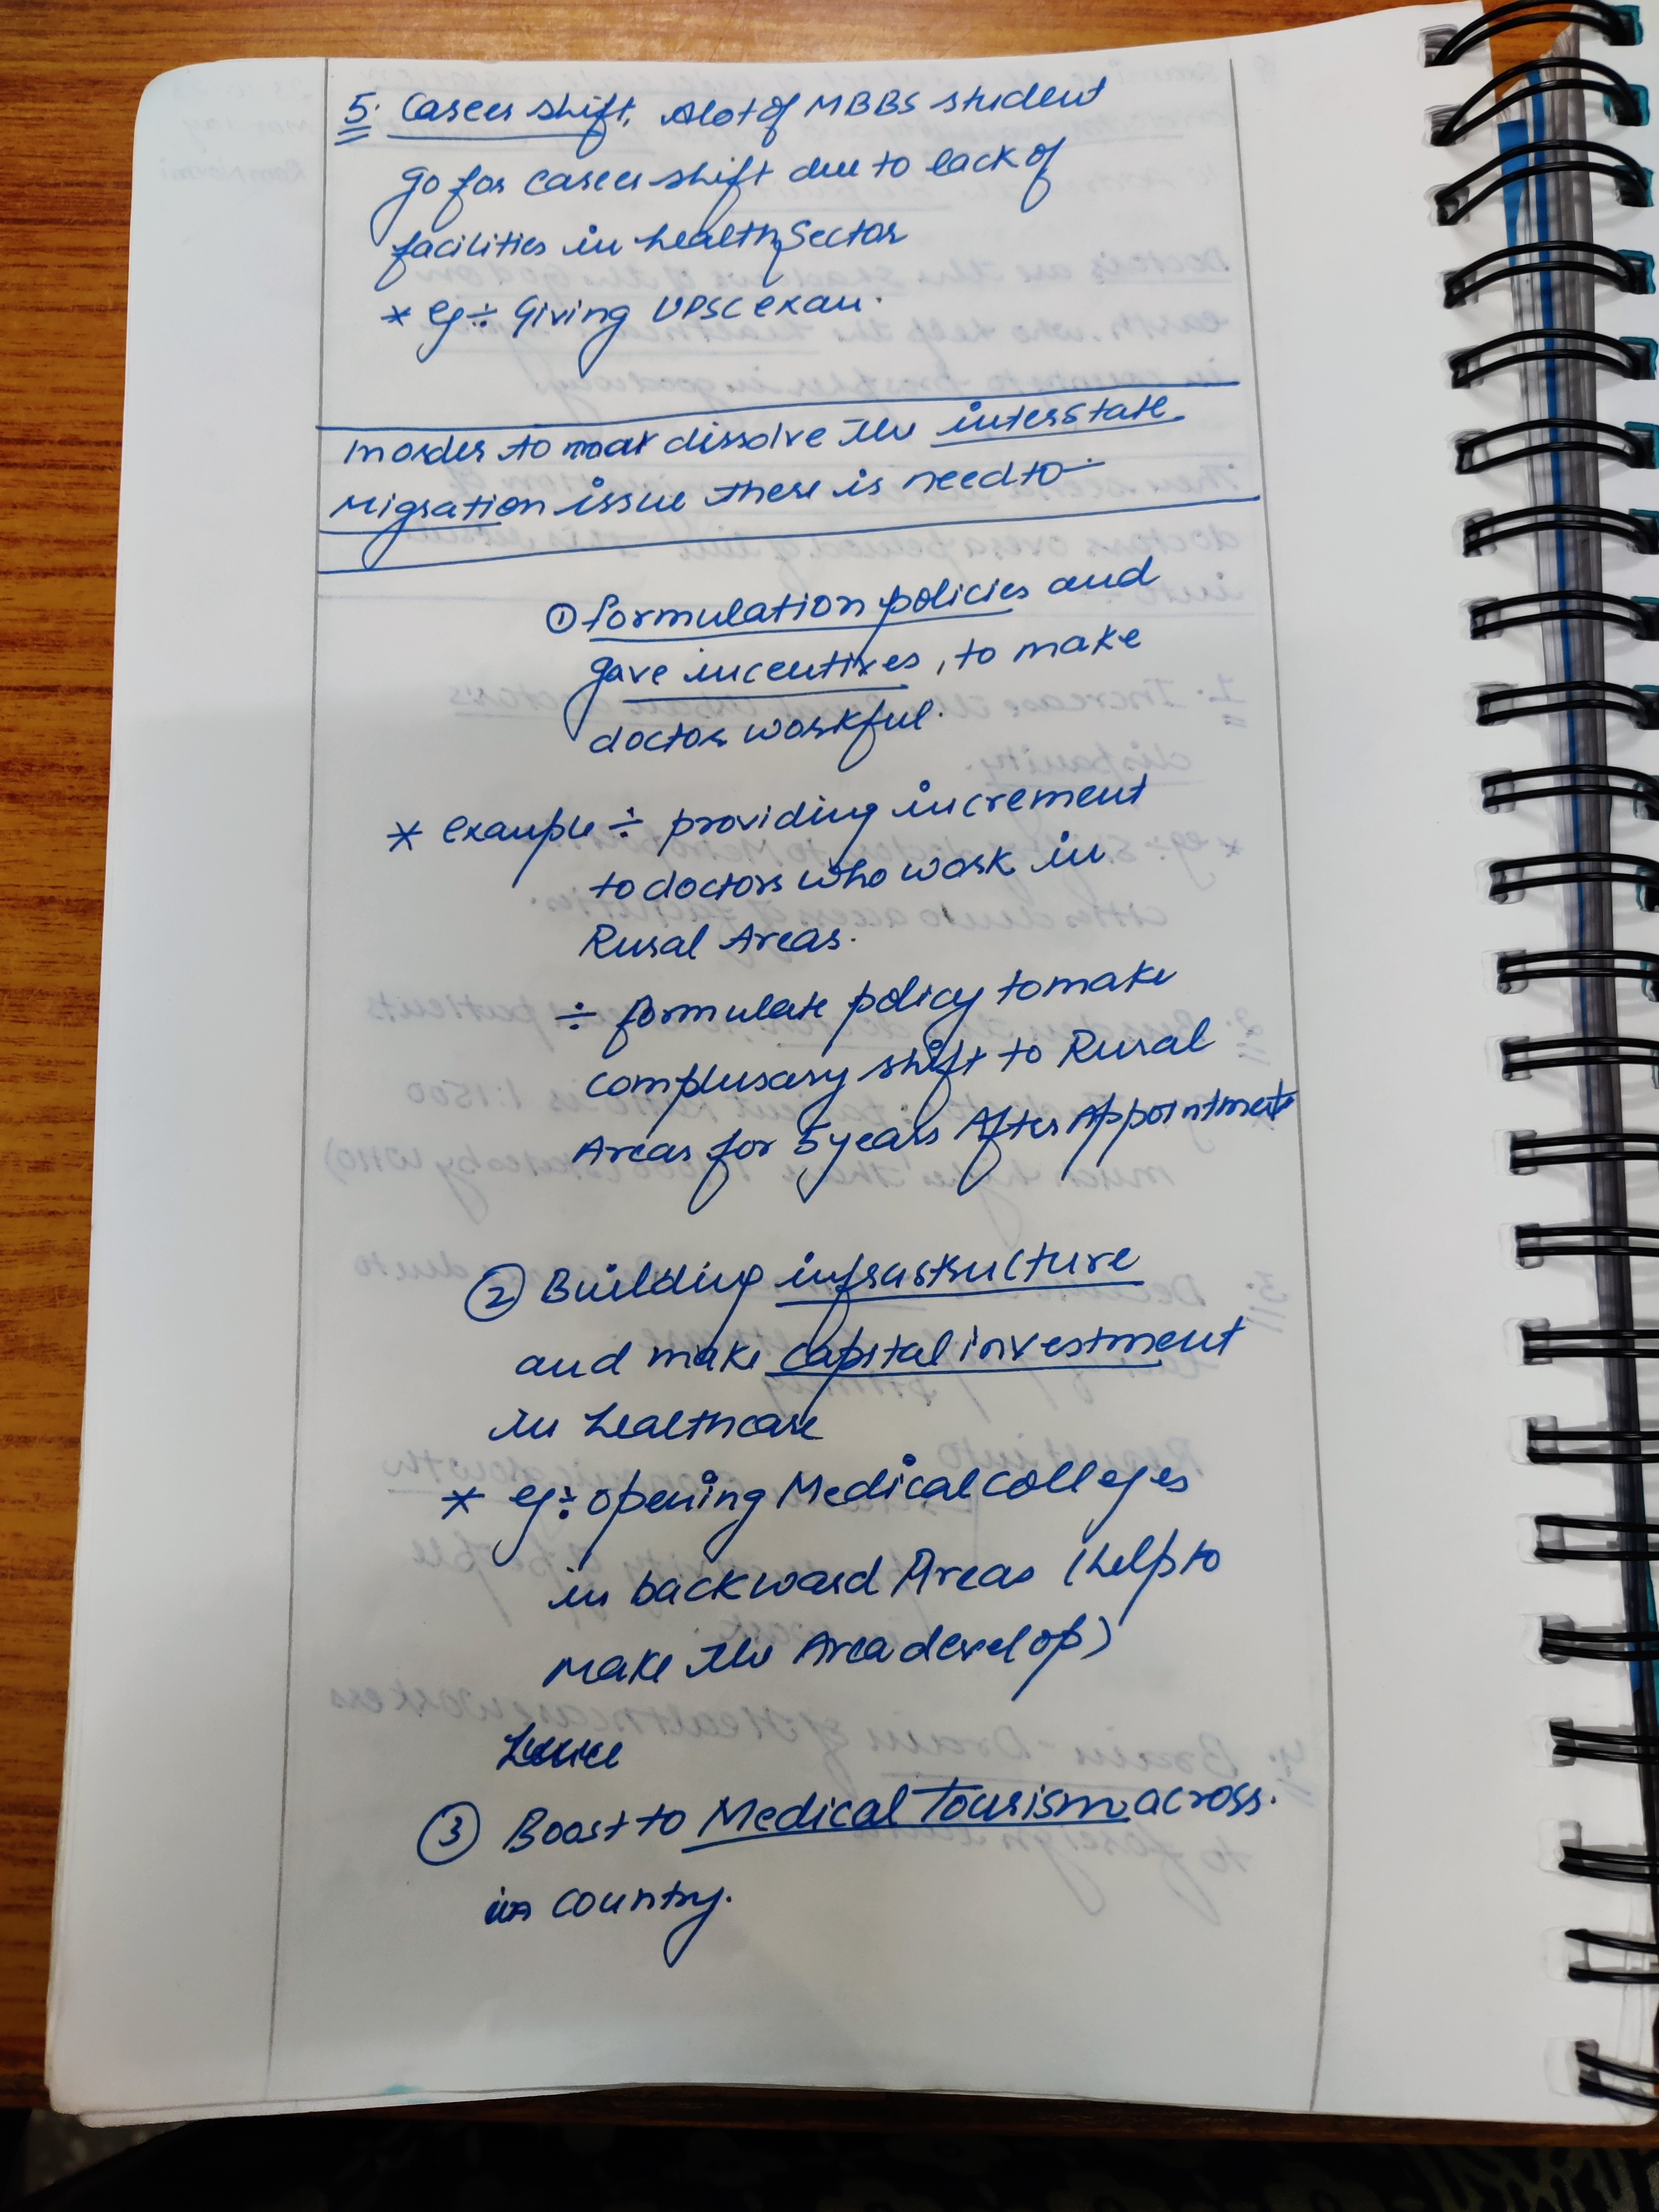 5. Career shift, A lot of MBBS student
go for career shift due to lack of
facilities in health Sector
* eg ÷ Giving UPSC exam.
In order to dissolve the interstate
Migration issue there is need to -
① formulation policies and
gave incentives, to make
doctor workful.
* example ÷ providing increment
to doctors who work in
Rural Areas.
÷ formulate policy to make
complusary shift to Rural
Areas for 5 years After Appointment
② Building infrastructure
and make capital investment
in healthcare
* eg ÷ opening Medical colleges
in backward Areas (help to
make the Area develop)
③ Boost to Medical Tourism across.
in country.